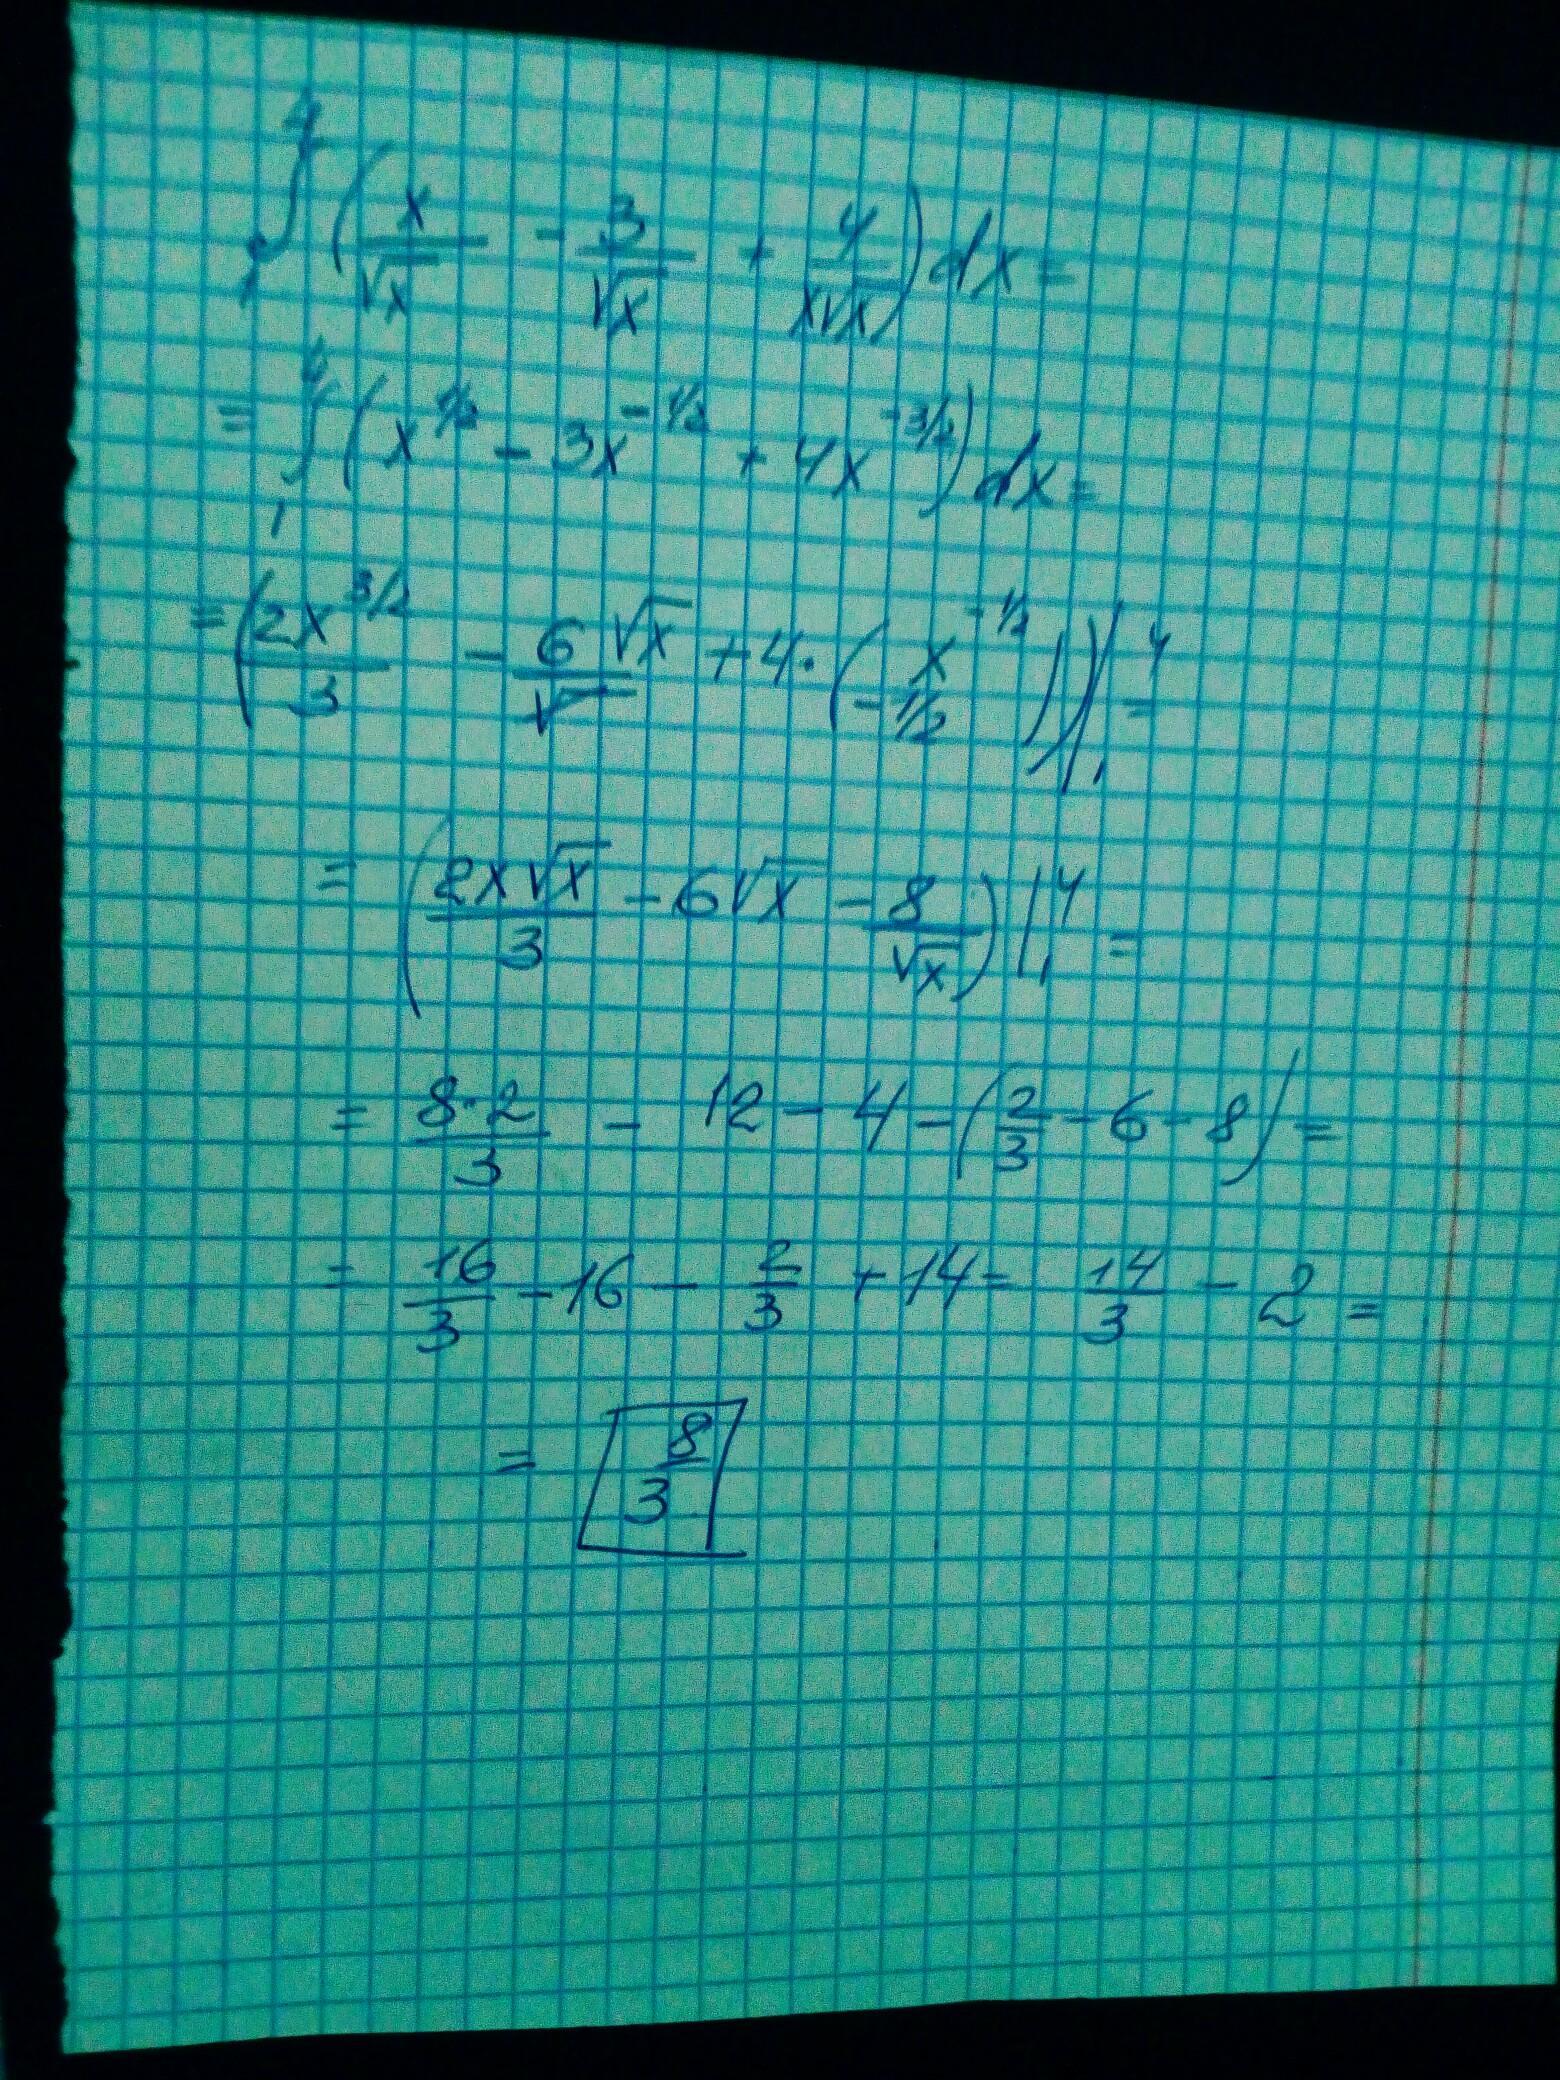 ∫₁⁴ (x/√x - 3/√x + 4/(x√x)) dx =
= ∫₁⁴ (x^(1/2) - 3x^(-1/2) + 4x^(-3/2)) dx =
= (2x^(3/2)/3 - 6√x/√ + 4·(x^(-1/2)/(-1/2)))|₁⁴ =
= (2x√x/3 - 6√x - 8/√x)|₁⁴ =
= 8·2/3 - 12 - 4 - (2/3 - 6 - 8) =
= 16/3 - 16 - 2/3 + 14 = 14/3 - 2 =
= 8/3